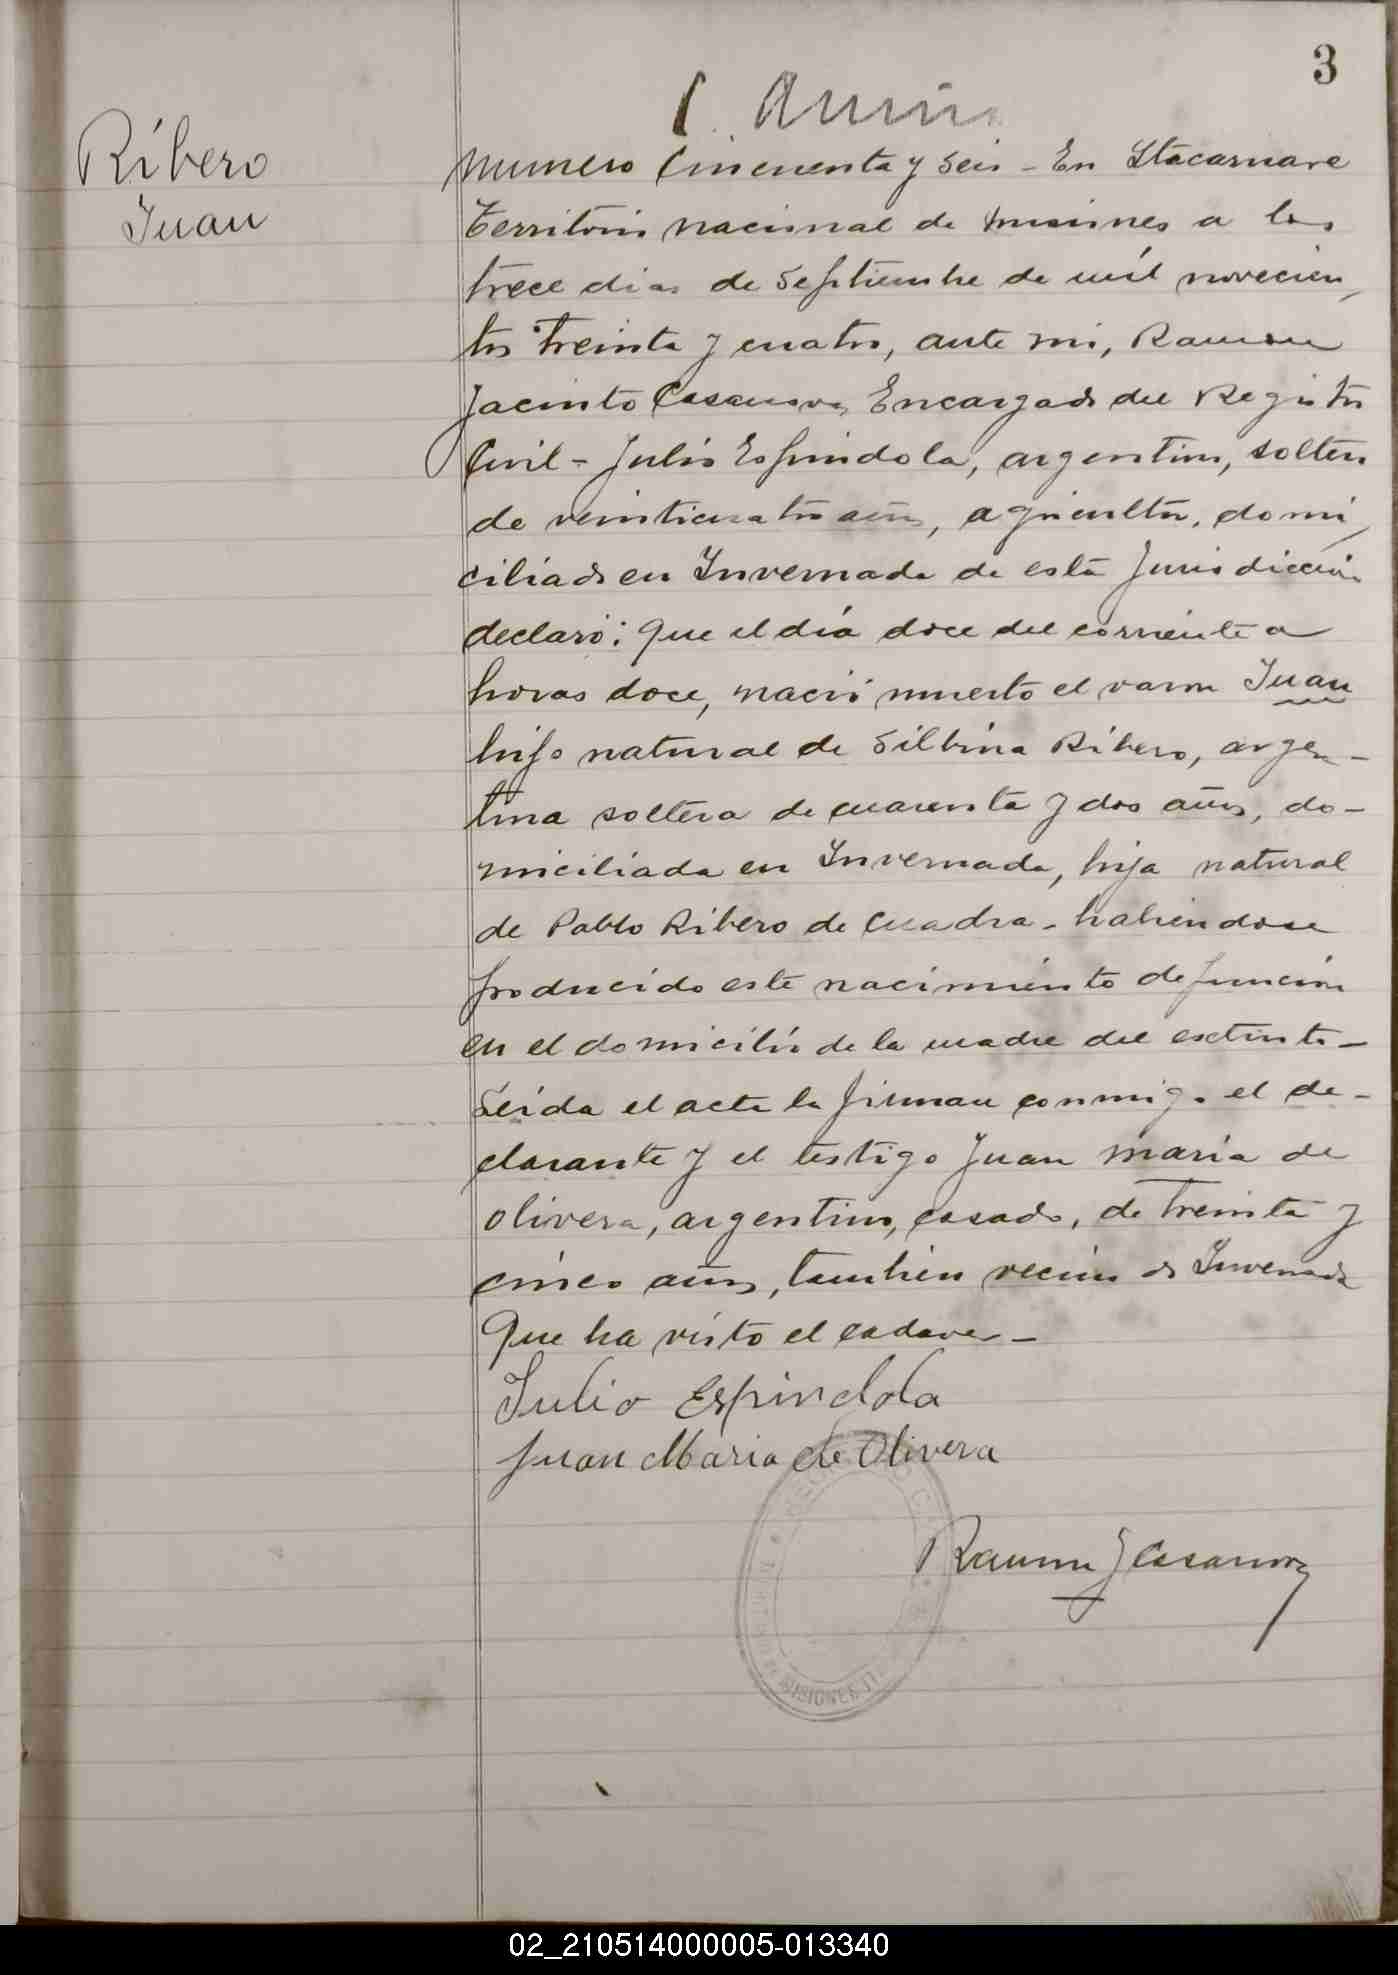 3
Ribero
Juan
numero Cincuenta y seis - En Itacaruare
Territorio nacional de misiones a los
trece dias de Septiembre de mil novecien
tos treinta y cuatro, ante mi, Ramon
Jacinto Casanova, Encargado del Registro
Civil - Julio Espindola, argentino, soltero
de veinticuatro años, agricultor, domi
ciliado en Invernada de esta Jurisdicción
declaró: Que el día doce del corriente a
horas doce, nació muerto el varon Juan
hijo natural de Silbina Ribero, argen-
tina soltera de cuarenta y dos años, do-
miciliada en Invernada, hija natural
de Pablo Ribero de Cuadra - habiendose
producido este nacimiento defuncion
en el domicilio de la madre del extinto -
Leida el acta la firman conmigo el de-
clarante y el testigo Juan maria de
Olivera, argentino, casado, de treinta y
cinco años, tambien vecino de Invernada
Que ha visto el cadaver -
Julio Espindola
Juan Maria de Olivera
Ramon J Casanova
MISIONES
02_210514000005-013340